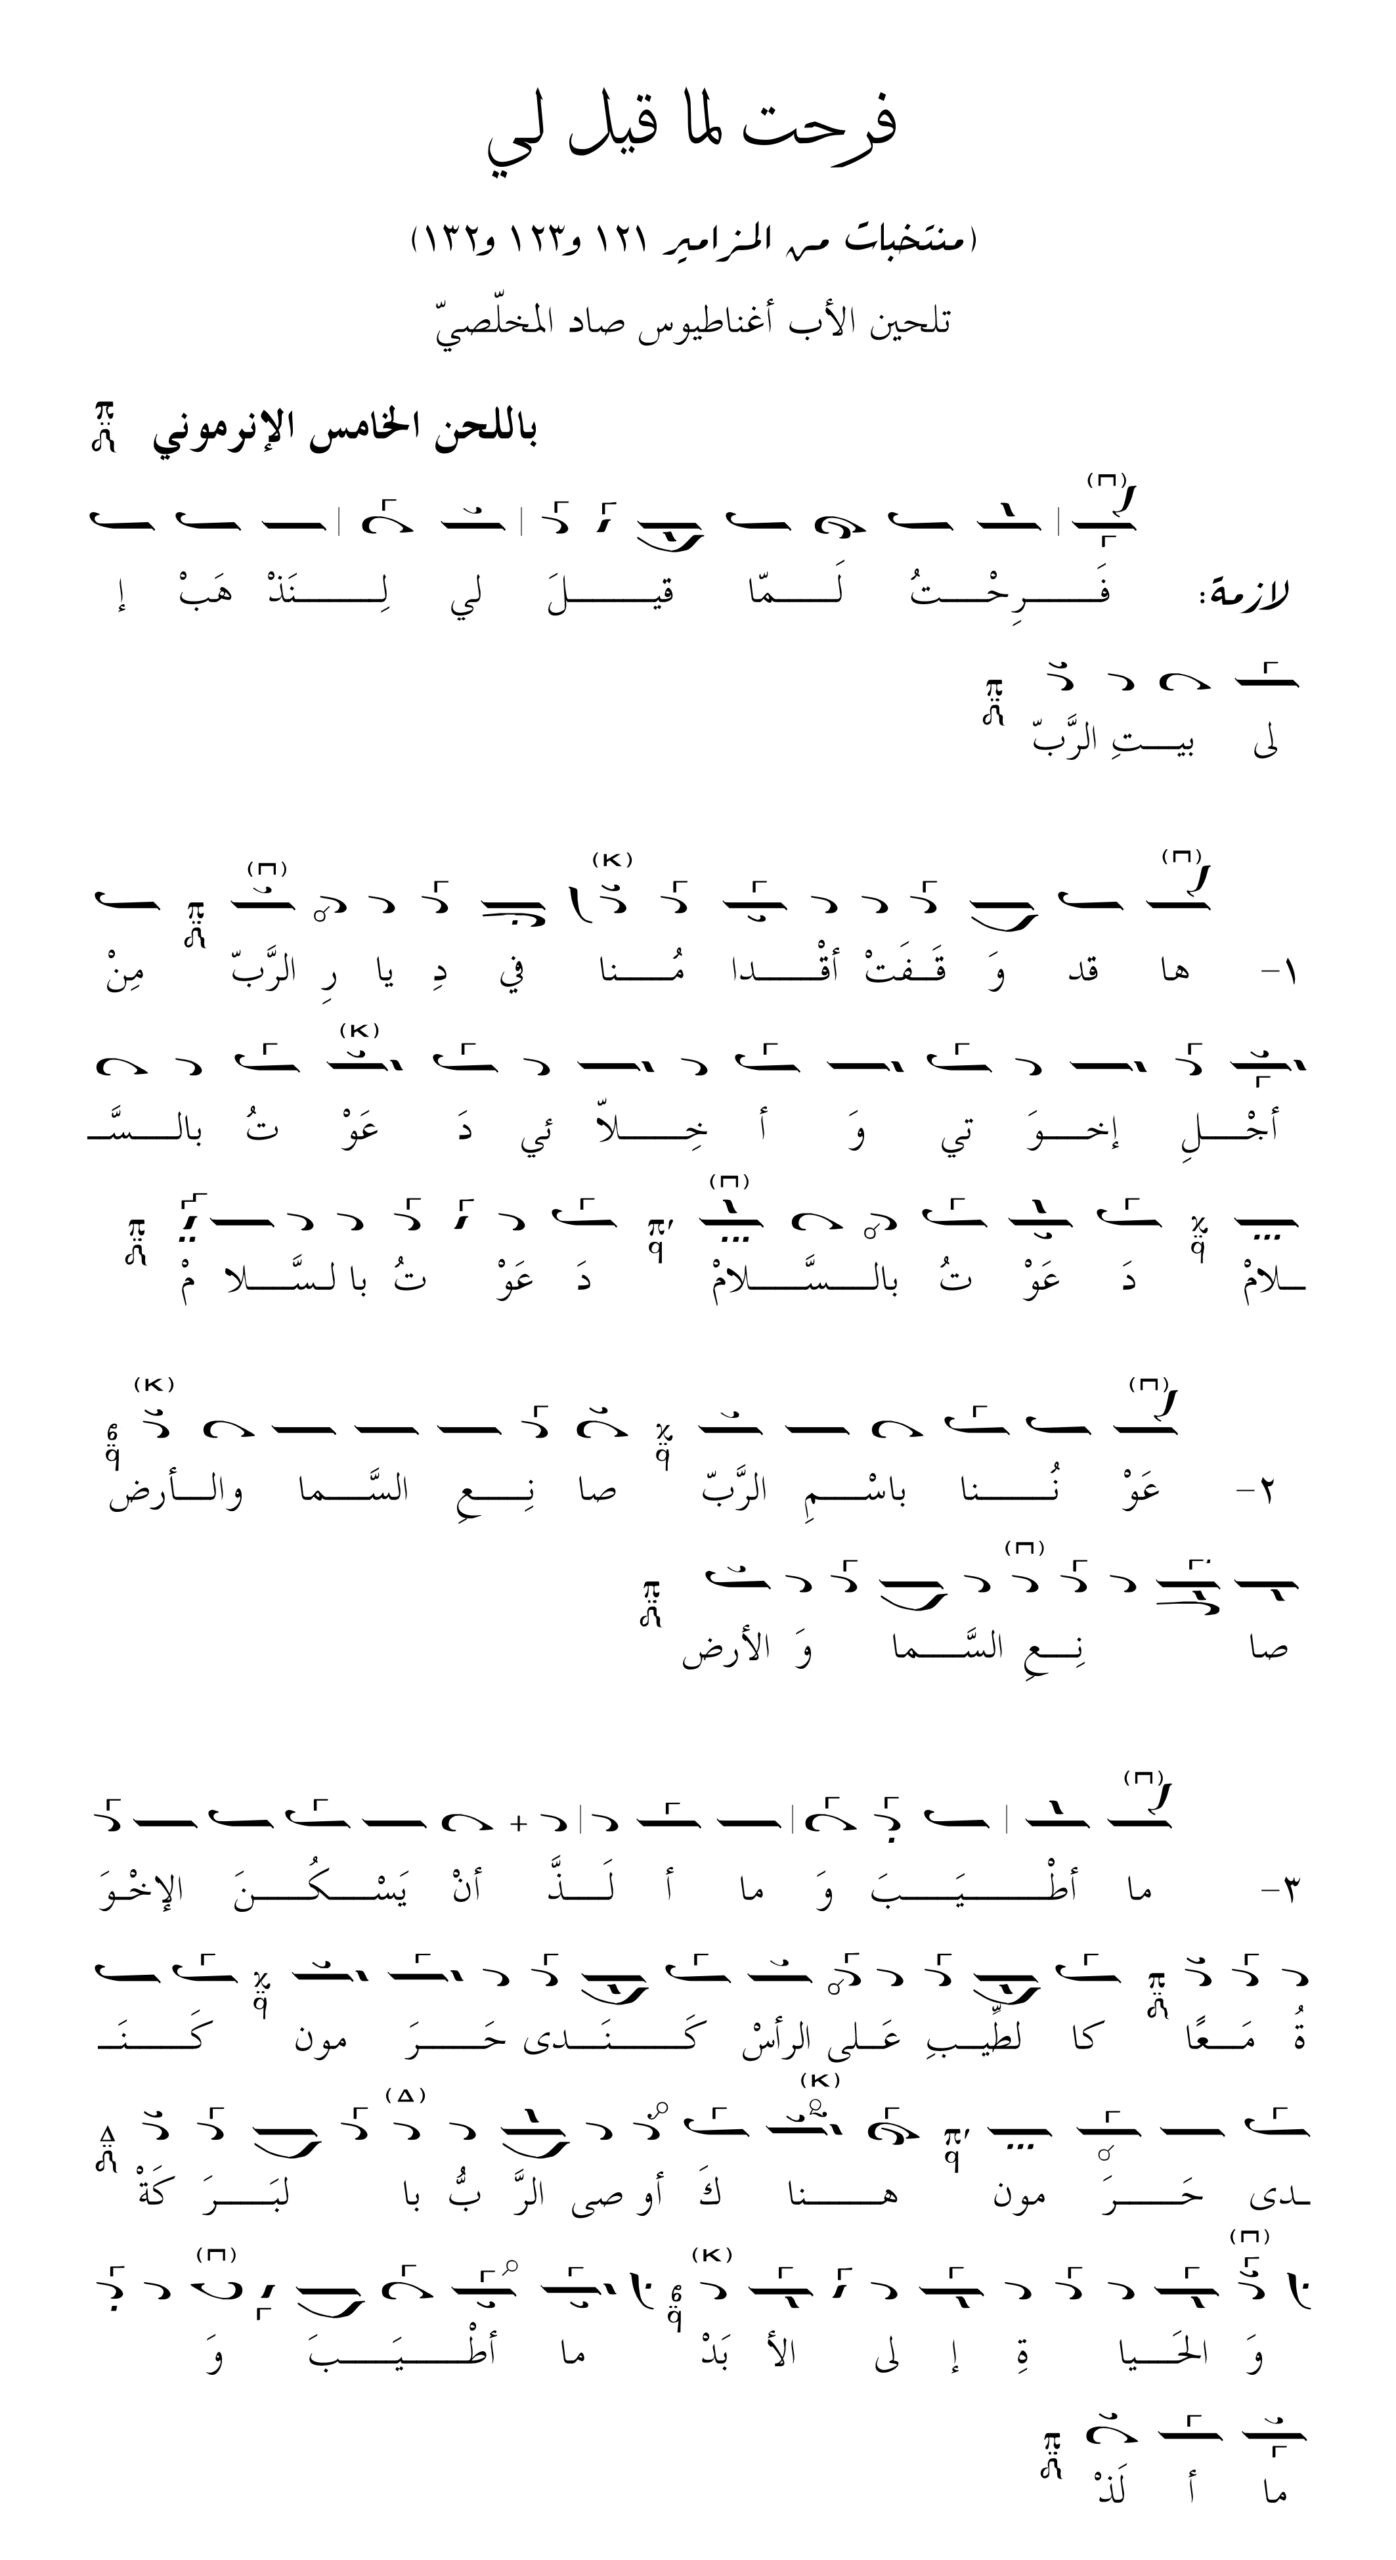 فرحت لما قيل لي
(منتخبات من المزامير ١٢١ و١٢٣ و١٣٢)
تلحين الأب أغناطيوس صاد المخلّصيّ
باللحن الخامس الإنرموني
لازمة: فَـرِحْـتُ لَـمّا قيـلَ لي لِـنَذْ هَبْ إ
لى بيـتِ الرَّبّ
١- ها قد وَ قَـفَتْ أقْـدا مُـنا في دِ يا رِ الرَّبّ مِنْ
أجْـلِ إخـوَ تي وَ أ خِـلاّ ئي دَ عَوْ تُ بالـسَّـ
ـلامْ دَ عَوْ تُ بالـسَّـلامْ دَ عَوْ تُ با لـسَّـلا مْ
٢- عَوْ نُـنا باسْـمِ الرَّبّ صا نِـعِ السَّـما والـأرض
صا نِـعِ السَّـما وَ الأرض
٣- ما أطْـيَـبَ وَ ما أ لَـذَّ أنْ يَسْـكُـنَ الإخْـوَ
ةُ مَـعًا كا لطِّيـبِ عَـلى الرأسْ كَـنَـدى حَـرَ مون كَـنَـ
ـدى حَـرَ مون هـنا كَ أو صى الرَّ بُّ با لبَـرَ كَةْ
وَ الحَـيا ةِ إ لى الأ بَدْ ما أطْـيَـبَ وَ
ما أ لَذْ